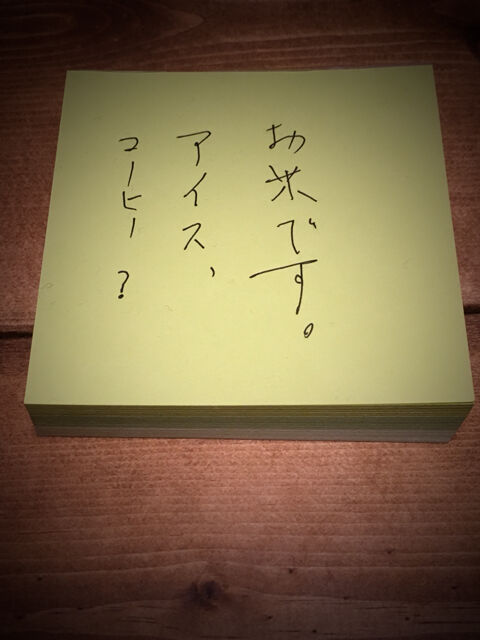 お米です。
アイス、
コーヒー?